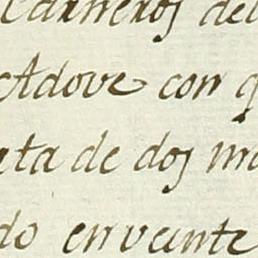 Carneros del
Adove con q
ata de dos m
do en veinte